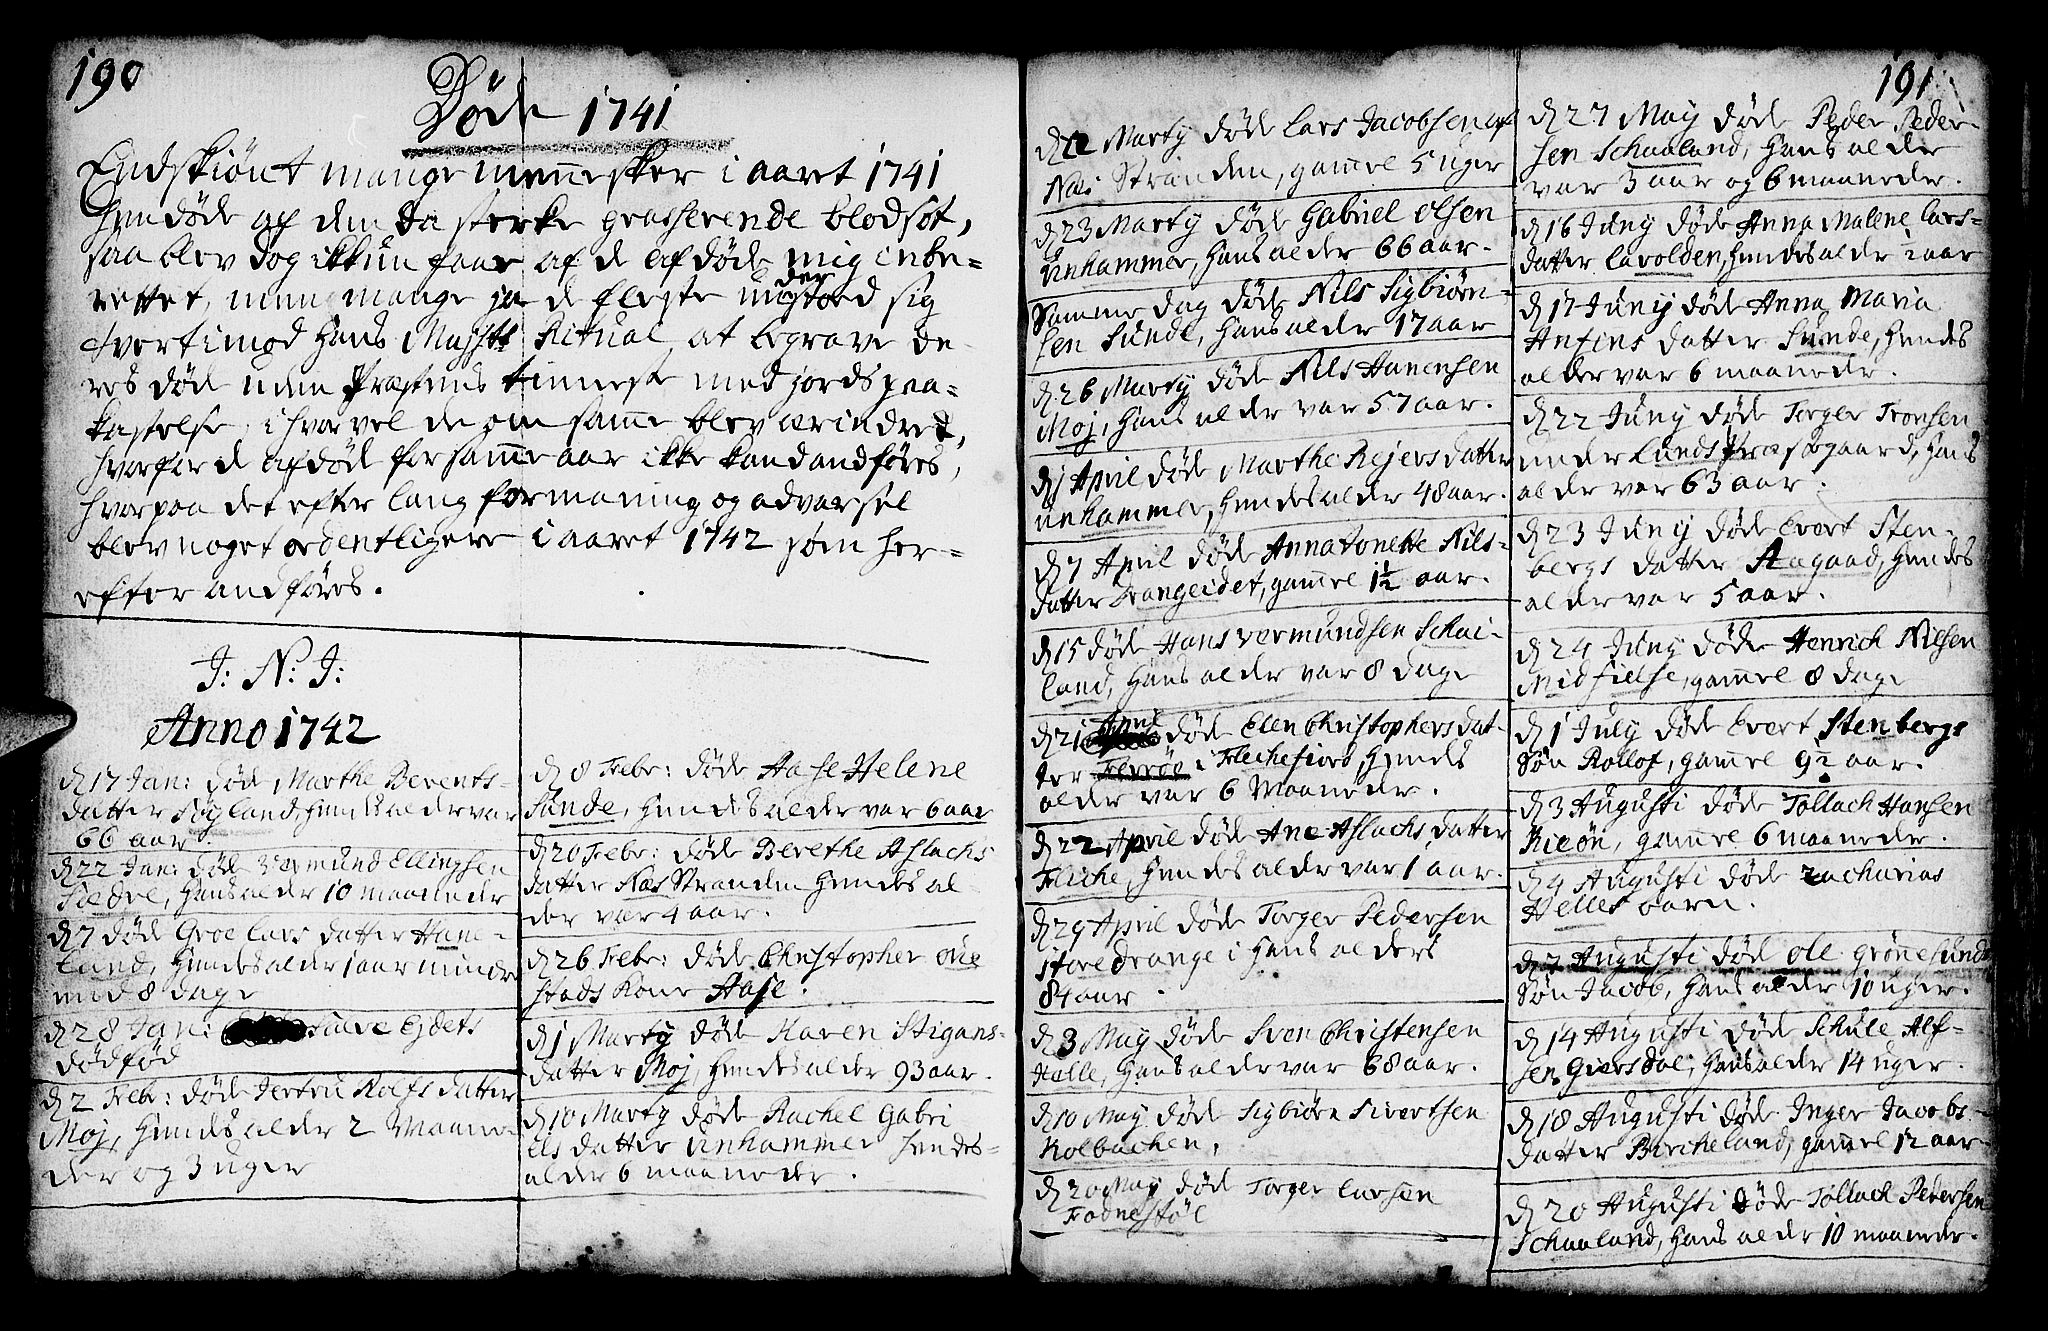 190
Døde 1741
Endskiønt mange mennesker i aaret 1741
hendøde af den da sterke grasserende blodsot,
saa blev dog ikkun faae af de afdøde mig inbe-
rettet, men mange ja de fleste understoed sig
tvertimod Hans Maystts Ritual at begrave de-
res døde uden Præstens tieneste med jords paa-
kastelse, ihvorvel de om samme blev ærindret,
hvorfor de afdøde for samme aar ikke kand andføres,
hvorpaa det efter lang formaning og advarsel
blev noget ordentligere i aaret 1742 som her-
efter andføres.
J: N: J:
Anno 1742
d 17 Jan: døde Marthe Berents-
datter Røgland, hendes alder var
66 aar.
d 22 Jan: døde Vermund Ellingsen
Siedve, hans alder 10 maaneder
d 7 døde Groe Lars datter Haae-
land, hendes alder 1 aar mindre
end 8 dage
d 28 Jan: Siave Ejdets
dødfød
d 2 Febr: døde Jertru Rolfs datter
Moj, hendes alder 2 Maane-
der og 3 uger
d 8 Febr: døde Aase Helene
Sunde, hendes alder var 6 aar
d 20 Febr: døde Berethe Aslachs
datter Næs Stranden hendes al-
der var 4 aar.
d 26 Febr: døde Christopher Øie
stads kone Aase.
d 1 Marty døde Karen Stigans-
datter Moj, hendes alder 93 aar.
d 10 Marty døde Rachel Gabri
els datter Unhammer hendes
alder 6 maaneder.
d 12 Marty døde Lars Jacobsen af
Næs Stranden, gamel 5 uger
d 23 Marty døde Gabriel Olsen
Unhammer, hans alder 66 aar.
Samme dag døde Nils Sigbiørn-
sen Sunde, hans alder 17 aar
d 26 Marty døde Nils Hanensen
Moj, hans alder var 57 aar.
d 1 April døde Marthe Rejersdatter
Unhammer, hendes alder 48 aar.
d 7 April døde Anna Tonette Nils-
datter Drangeidet, gamel 1½ aar.
d 15 døde Hans Vermundsen Schai-
land, hans alder var 8 dage
d 21 April døde Elen Christophersdat-
ter i Flichefiord, hendes
alder var 6 Maaneder.
d 22 April døde Ane Aslachs datter
Fliche, hendes alder var 1 aar.
d 29 April døde Torger Pedersen
Store Drange i hans alders
84 aar.
d 3 May døde Sven Christensen
Helle, hans alder var 68 aar.
d 10 May døde Sigbiørn Sivertsen
Kolbachen,
d 20 May døde Torger Larsen
Fodnestøl
191
d 27 May døde Peder Peder-
sen Schaaland, hans alder
var 3 aar og 6 maaneder.
d 16 Juny døde Anna Malene Lars-
datter Lavolden, hendes alder ½ aar
d 17 Juny døde Anna Maria
Antens datter Sunde, hendes
alder var 6 maaneder.
d 22 Juny døde Torger Tronsen
under Lunds Præstegaard, hans
alder var 63 aar.
d 23 Juny døde Evert Sten-
bergs datter Aagaad, hendes
alder var 5 aar.
d 24 Juny døde Henrich Nilsen
Midfielse, gamel 8 dage
d 1 July døde Evert Stenbergs
Søn Rollof, gamel 9½ aar.
d 3 Augusti døde Tollach Hansen
Rieøn, gamel 6 maaneder.
d 4 Augusti døde Zacharias
Helles barn.
d 7 Augusti død Ole Grønesunds
Søn Jacob, hans alder 10 uger.
d 14 Augusti døde Schule Alf-
sen Giersdal, hans alder 14 uger.
d 18 Augusti døde Inger Jacobs-
datter Bircheland, gamel 12 aar
d 20 Augusti døde Tollach Pedersen
Schaaland, hans alder 10 maaneder.